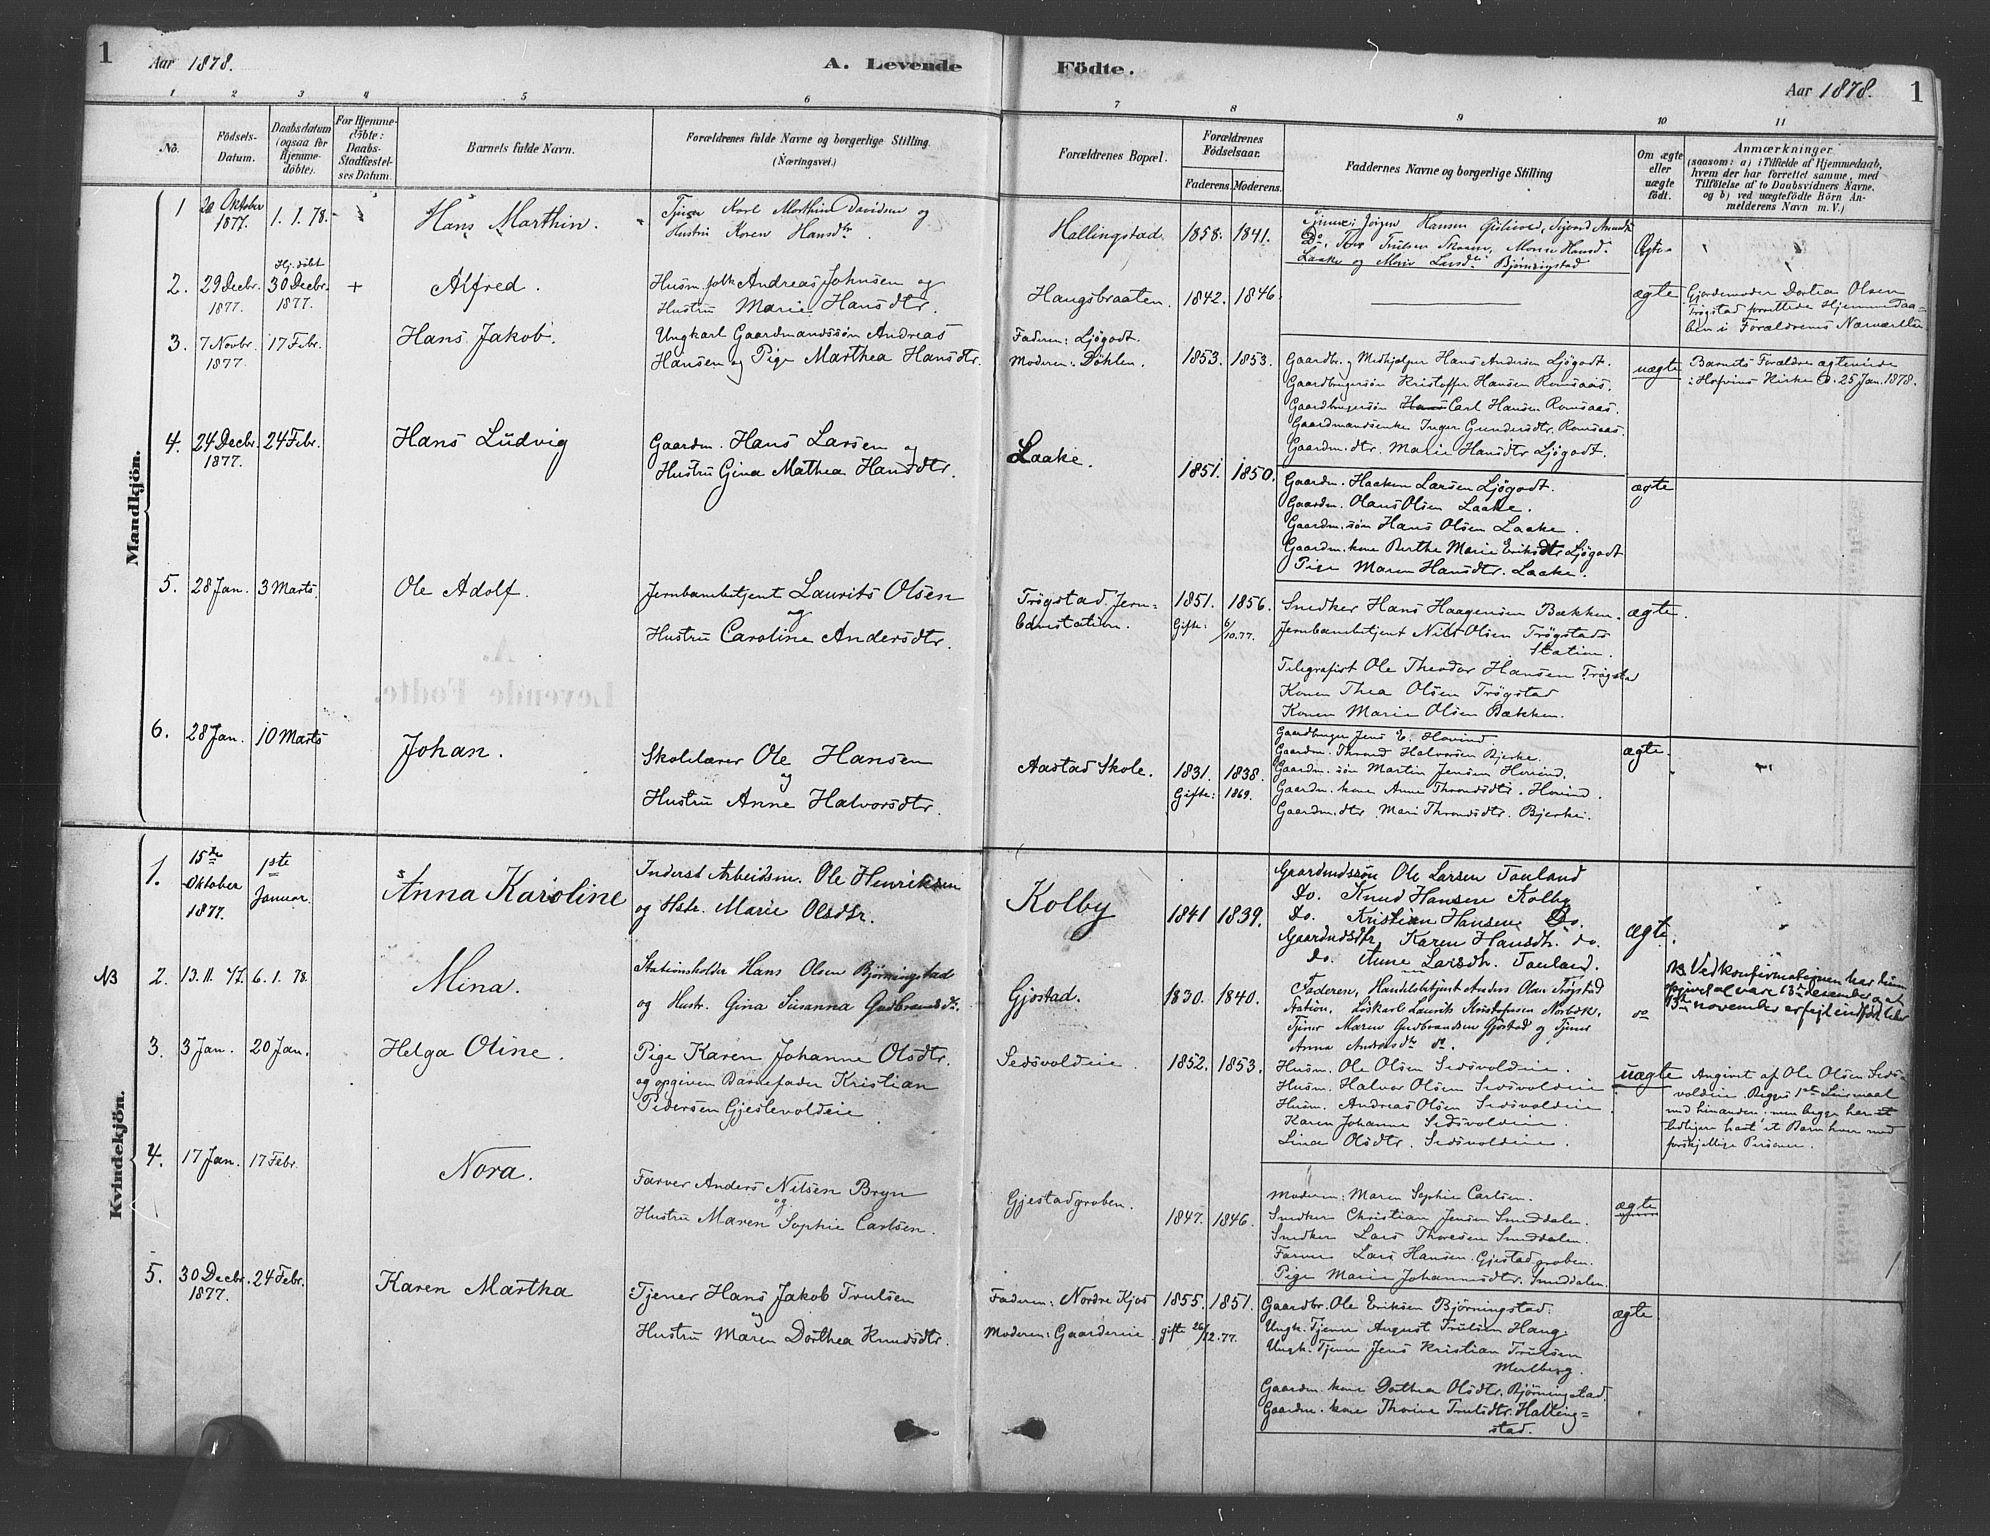 1
Aar 1878.
A. Levende
Födte.
Aar 1878.
1
1 2 3 4 5 6 7 8 9 10 11
No.
Födsels-
Datum.
Daabsdatum
(ogsaa for
Hjemme-
döbte).
For Hjemme-
döbte:
Daabs-
Stadfæstel-
ses Datum.
Barnets fulde Navn.
Forældrenes fulde Navne og borgerlige Stilling
(Næringsvei.)
Forældrenes Bopæl.
Forældrenes
Födselsaar.
Faderens. Moderens.
Faddernes Navne og borgerlige Stilling
Om ægte
eller
uægte
födt.
Anmærkninger
(saasom: a) i Tilfælde af Hjemmedaab,
hvem der har forrettet samme, med
Tilföielse af to Daabsvidners Navne,
og b) ved uægtefödte Börn An-
melderens Navn m. V.)
Mandkjön.
1
20 Oktober
1877.
1. 1. 78.
Hans Marthin.
Karl Marthin Davidsen og
Hustru Karen Hansdtr.
Hallingstad
1858. 1841.
Tjener: Jörgen Hansen
Do.
Laake og Marie Larsdtr. Björningstad
Ægte
2.
29 Decbr.
1877.
Hj. döbt
30 Decbr.
1877.
+
Alfred.
Husm. folk Andreas Johnsen og
Hustru Marie Hansdtr.
Haugsbraaten.
1842. 1846.
ægte
Gjordemoder Dortea Olsen
Trögstad forrettede Hjemmedaa-
ben i Forældrenes Nærværelse
3.
7 Novbr.
1877.
17 Febr.
Hans Jakob.
Ungkarl Gaardmandssön Andreas
Hansen og Pige Marthea Hansdtr.
Faderen: Ljögodt.
Moderen: Döhlen.
1853. 1853.
Gaardbr. og Medhjelper Hans Andersen Ljögodt.
Gaardbrugersön Kristoffer Hansen Romsaas.
Gaardbrugersön Hans Carl Hansen Romsaas.
Gaardmandsenke Inger Gundersdtr. Romsaas.
Gaardm. dtr. Marie Hansdtr Ljögodt.
uægte
Barnets Forældre ægteviede
i Hofvins Kirke d. 25 Jan. 1878.
4.
24 Decbr.
1877.
24 Febr.
Hans Ludvig
Gaardm. Hans Larsen og
Hustru Gina Mathea Hansdtr.
Laake.
1851. 1850.
Gaardm. Haaken Larsen Ljögodt.
Gaardm. Olaus Olsen Laake.
Gaardm. sön Hans Olsen Laake.
Gaardm. kone Berthe Marie Eriksdtr Ljögodt
Pige Maren Hansdtr. Laake.
ægte
5.
28 Jan.
3 Marts.
Ole Adolf.
Jernbanebetjent Laurits Olsen
og
Hustru Caroline Andersdtr.
Trögstad Jern-
banestation.
1851. 1856.
Gifte: 6/10.77.
Snedker Hans Haagensen Bækken.
Jernbanebetjent Nils Olsen Trögstads
Station.
Telegrafist Ole Theodor Hansen Trögstad
Konen Thea Olsen Trögstad
Konen Marie Olsen Bækken.
ægte.
6.
28 Jan.
10 Marts
Johan.
Skolelærer Ole Hansen
og
Hustru Anne Halvorsdtr.
Aastad Skole.
1831. 1838.
Gifte: 1869.
Gaardbruger Jens E. Hovind.
Gaardm. Thrond Halvorsen Bjerke.
Gaardm. sön Martin Jensen Hovind.
Gaardm. kone Anne Throndsdtr. Hovind.
Gaardm. dtr. Mari Throndsdtr. Bjerke.
ægte.
Kvindekjön.
1.
15de
Oktober
1877.
1ste
Januar.
Anna Karoline
Inderst Arbeidsm. Ole Henriksen
og Hstr. Marie Olsdtr.
Kolby
1841 1839.
Gaardmdssön Ole Larsen Tauland
Do. Knud Hansen Kolby
Do. Kristian Hansen Do.
Gaardmdsdtr. Karen Hansdtr. do.
do. Anne Larsdtr. Tauland.
ægte.
NB
2.
13. 11. 77.
6. 1. 78.
Mina.
Stationsholder Hans Olsen Björningstad
og Hustr. Gina Susanna Gudbrandsdtr.
Gjöstad.
1830. 1840.
Faderen, Handelsbetjent Anders Olsen Trögstad
Station, Löskarl Laurits Kristofersen Norbæk,
Tjener Maren Gudbrandsen Gjöstad og Tjener
Anna Andersdtr do.
do
NB Ved konfirmationen har hun
opgivet at var 13de desember og at
13de november er feil indfört her
3.
3 Jan.
20 Jan.
Helga Oline.
Pige Karen Johanne Olsdtr.
og opgiven Barnefader Kristian
Pedersen Gjeslevoldeie
Sedsvoldeie.
1852. 1853.
Husm. Ole Olsen Sedsvoldeie.
Husm. Halvor Olsen Sedsvoldeie
Husm. Andreas Olsen Sedsvoldeie
Karen Johanne Sedsvoldeie.
Lina Olsdtr. Sedsvoldeie.
uægte
Angivet af Ole Olsen Seds-
voldeie. Begges 1ste Leiermaal
med hinanden, men begge har et
tidligere havt et Barn hver med
forskjellige Personer.
4.
17 Jan.
17 Febr.
Nora.
Farver Anders Nilsen Bryn
og
Hustru Maren Sophie Carlsen.
Gjestadgroben.
1847. 1846.
Moderen: Maren Sophie Carlsen.
Snedker Christian Jensen Smeddalen.
Snedker Lars Thoresen Smeddalen.
Farver Lars Hansen Gjestadgroben.
Pige Marie Johannesdtr. Smeddalen.
ægte
5.
30 Decbr.
1877.
24 Febr.
Karen Martha
Tjener Hans Jakob Trulsen
og
Hustru Maren Dorthea Knudsdtr.
Faderen: Nordre Kjos
Moderen: Gaardereie.
1855. 1851.
gifte 26/12.77.
Gaardbr. Ole Eriksen Björningstad.
Ungk. Tjener August Trulsen Haug.
Ungk. Tjener Jens Kristian Trulsen
Melberg.
Gaardm. kone Dorthea Olsdtr. Björningstad.
Gaardm. kone Thorine Trulsdtr. Halling-
stad.
ægte